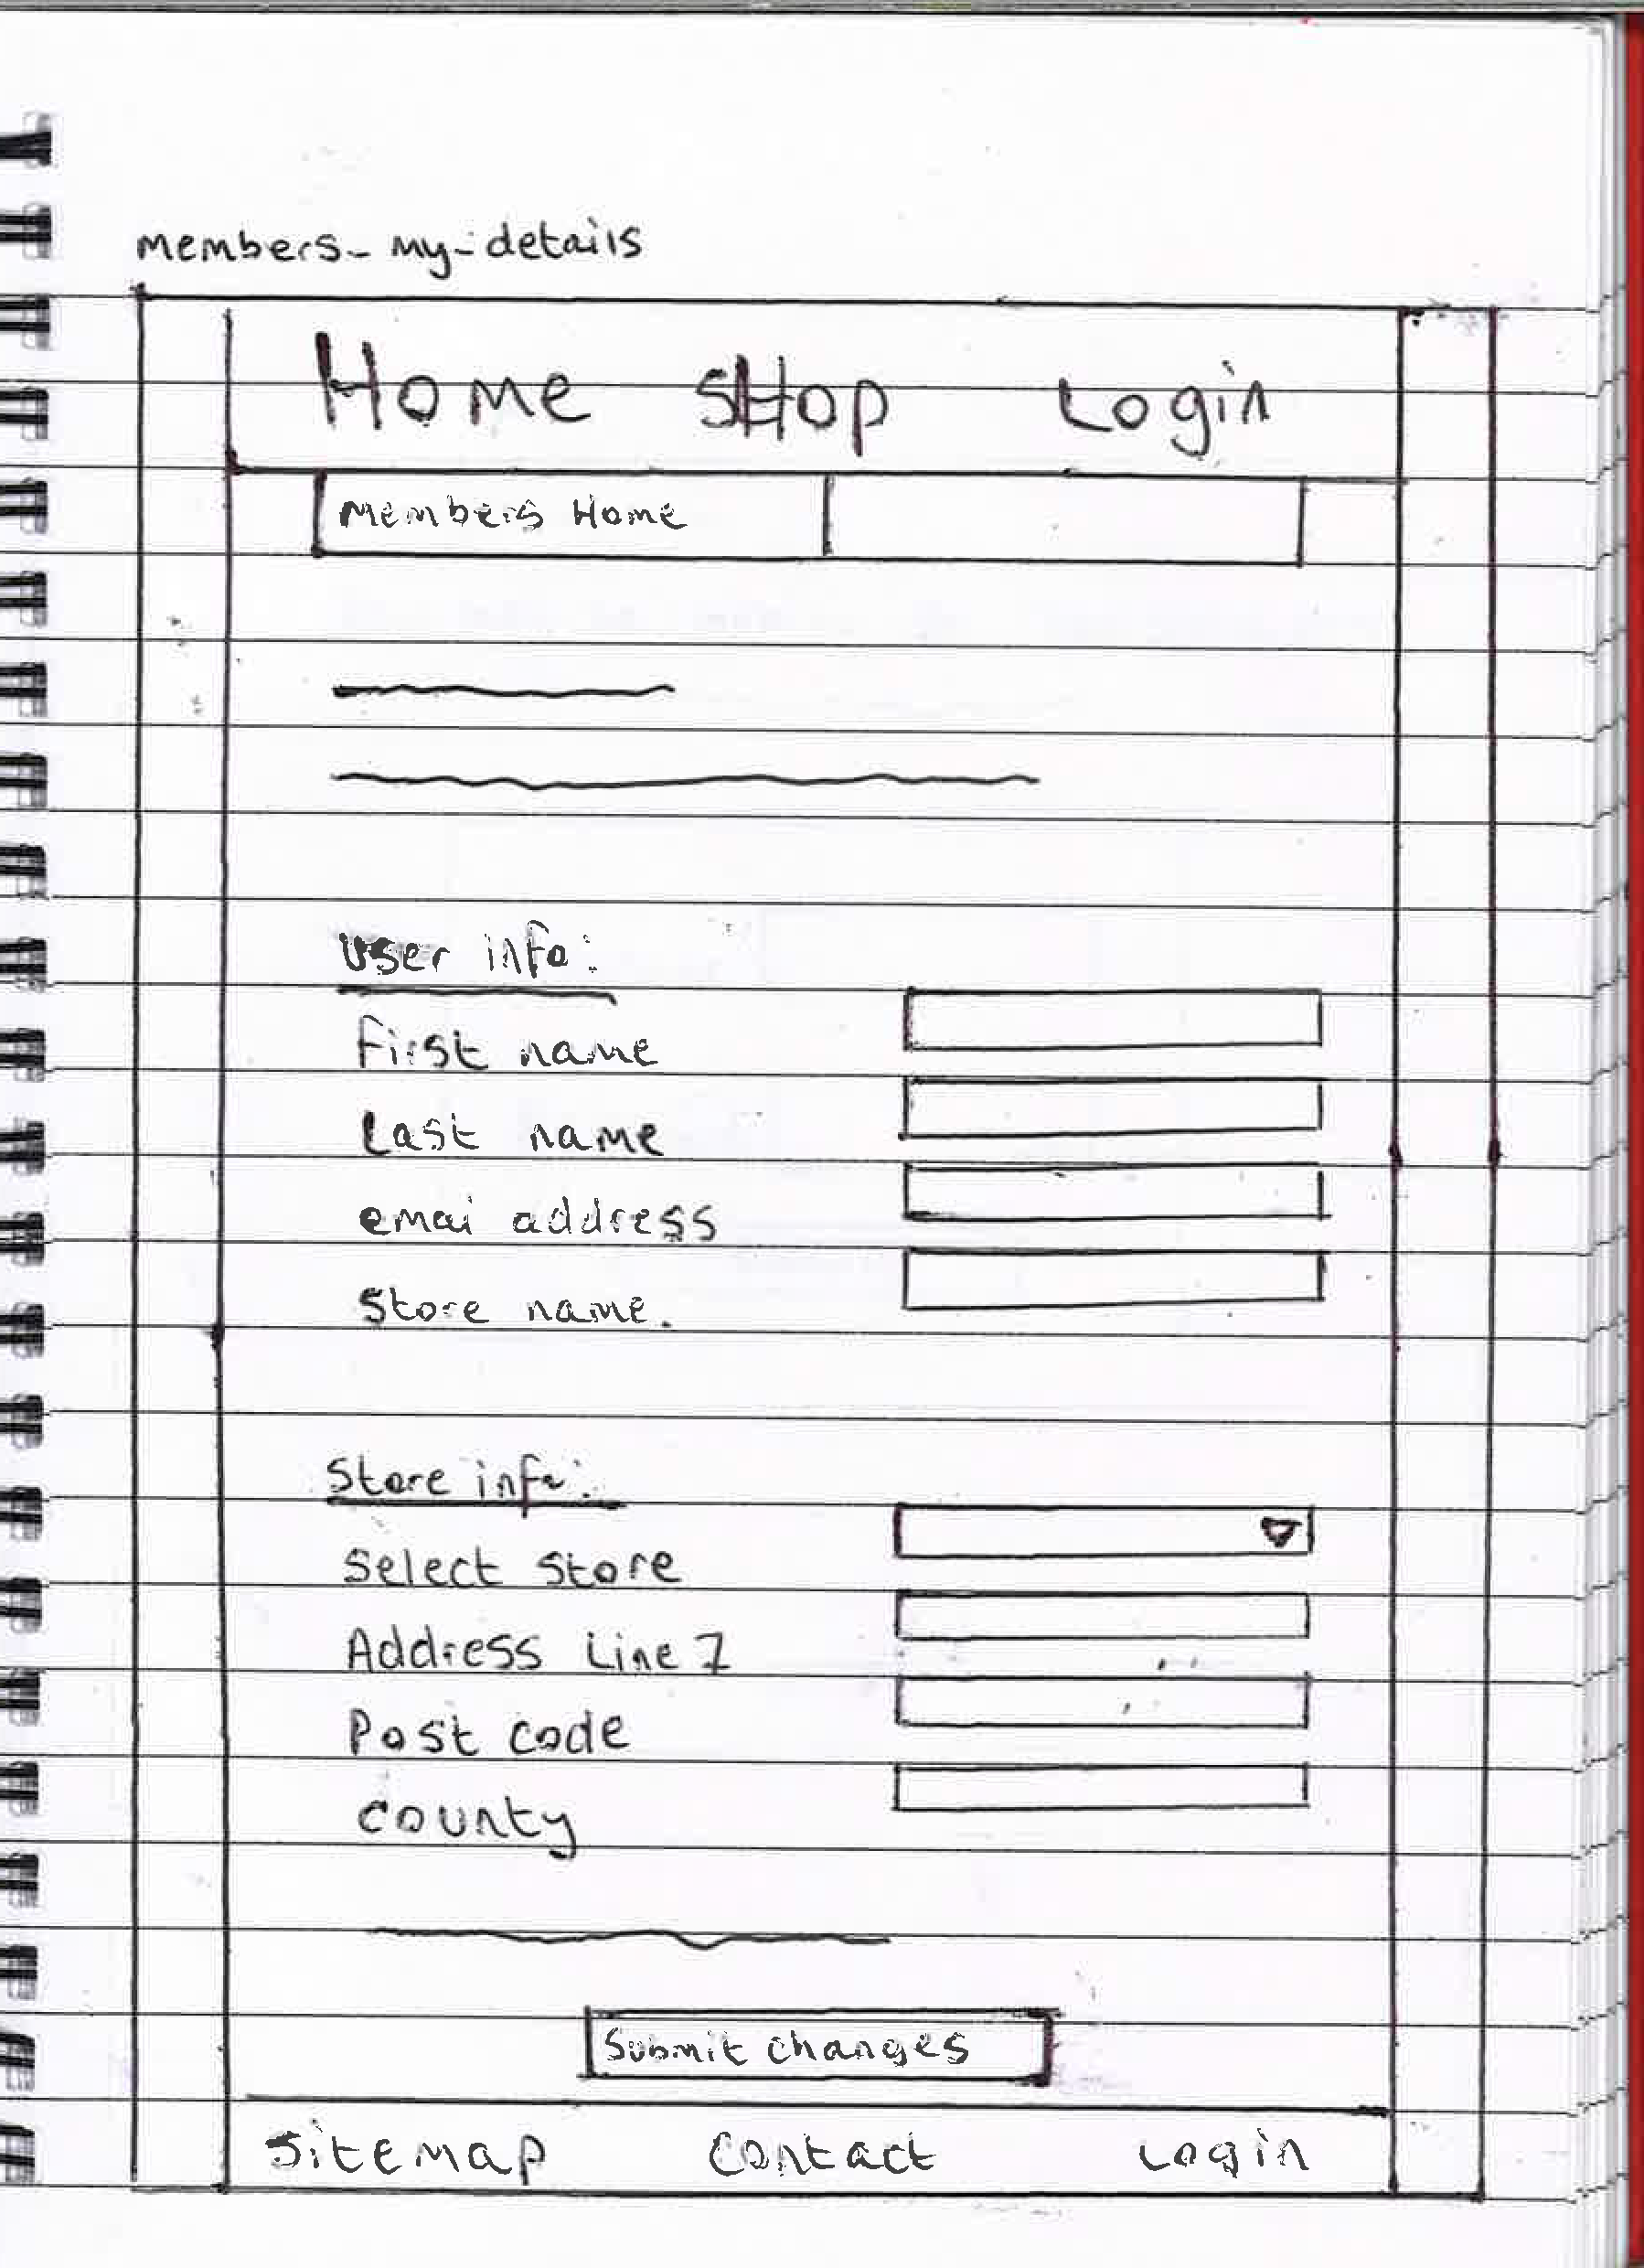 members-my-details
Home SHop Login
Members Home
User info:
First name
Last name
emai address
Store name.
Store info:
Select Store
Address Line 1
Post code
county
Submit changes
Sitemap Contact Login